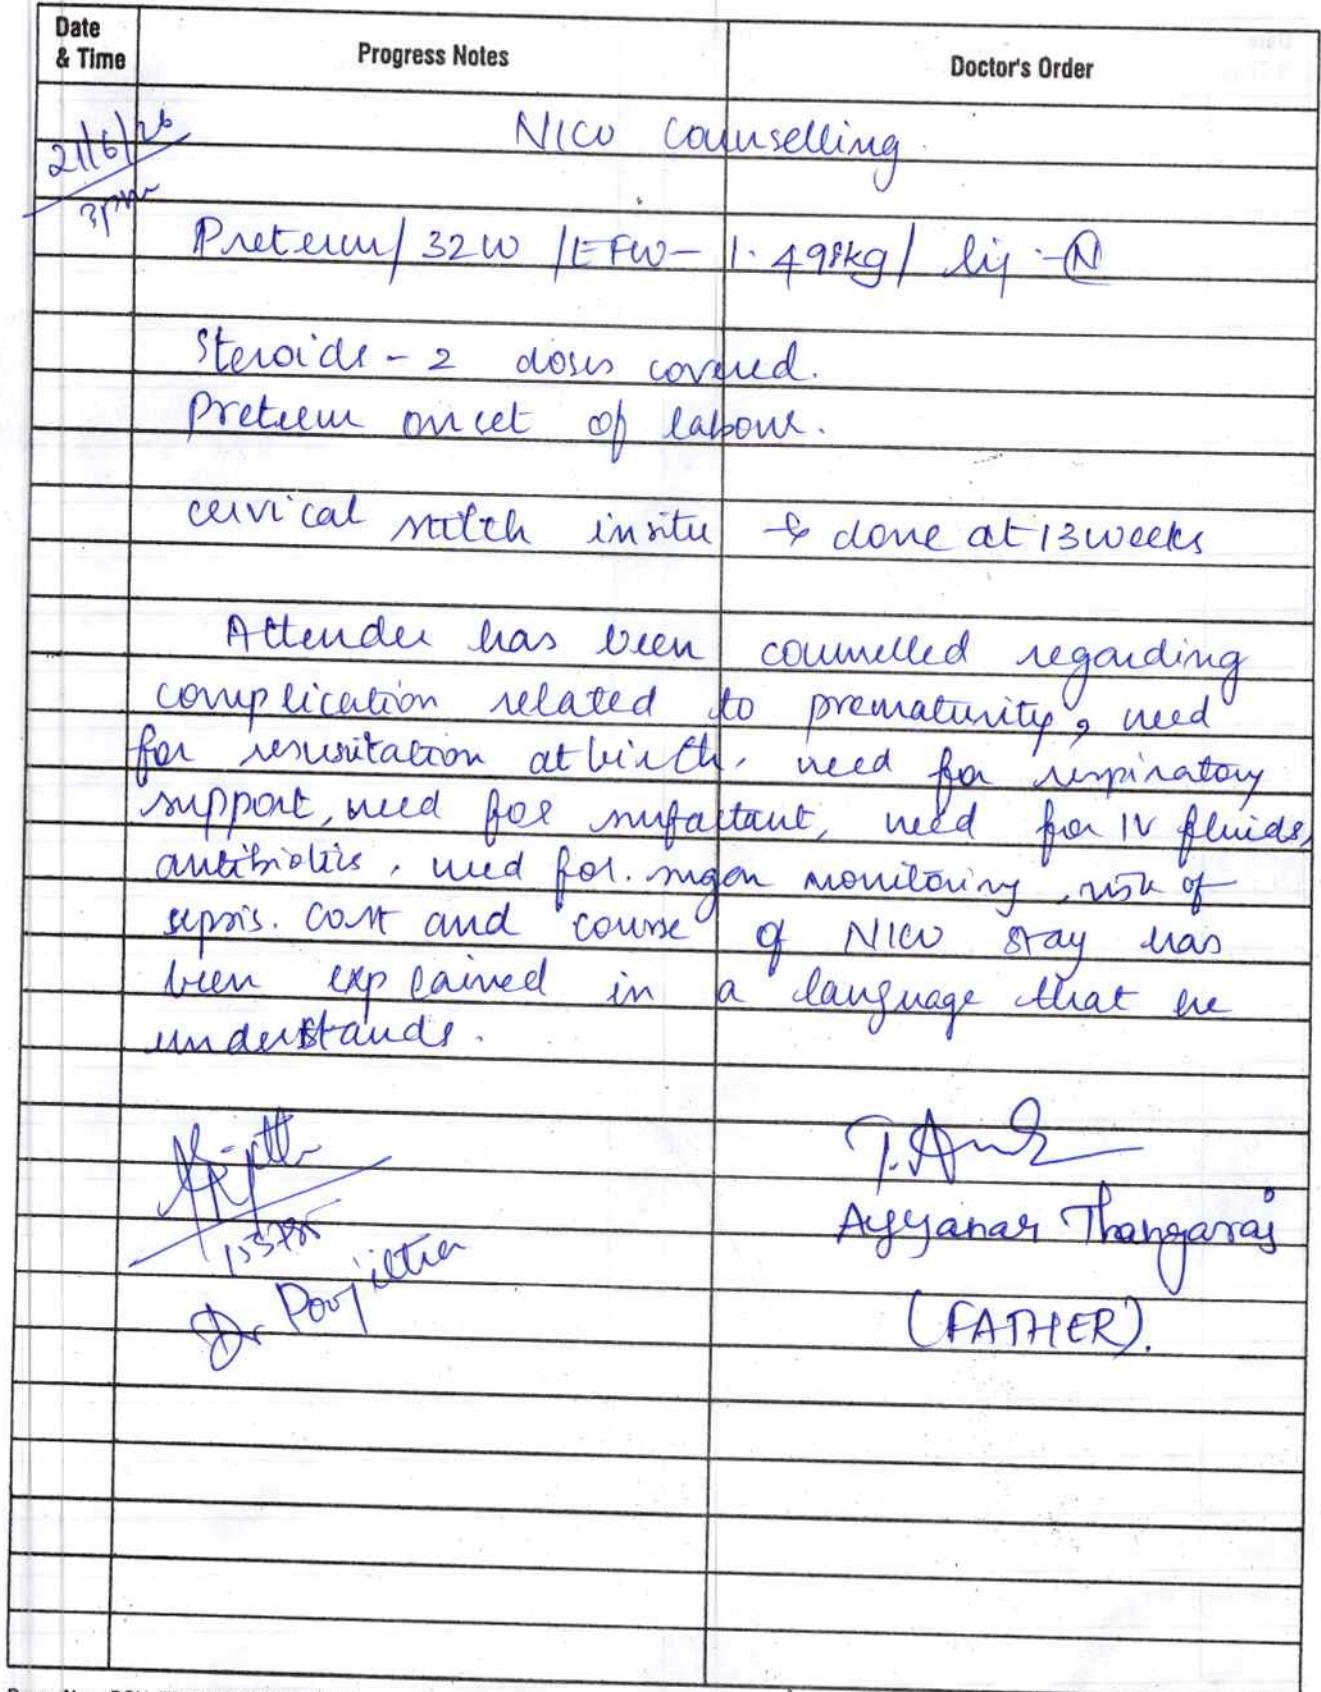 Date
& Time
Progress Notes
Doctor's Order
21/6/26
3pm
NICU Counselling.
Preterm / 32W / EFW - 1.498kg / liq - N
Steroids - 2 doses covered.
Preterm onset of labour.
cervical stitch insitu & done at 13 weeks
Attender has been counselled regarding
complication related to prematurity, need
for resusitation at birth, need for respiratory
support, need for surfactant, need for IV fluids,
antibiotics, need for. sugar monitoring, risk of
sepsis. Cost and course of NICU stay has
been explained in a language that he
understands.
Ayyanar Thangaraj
(FATHER).
Dr